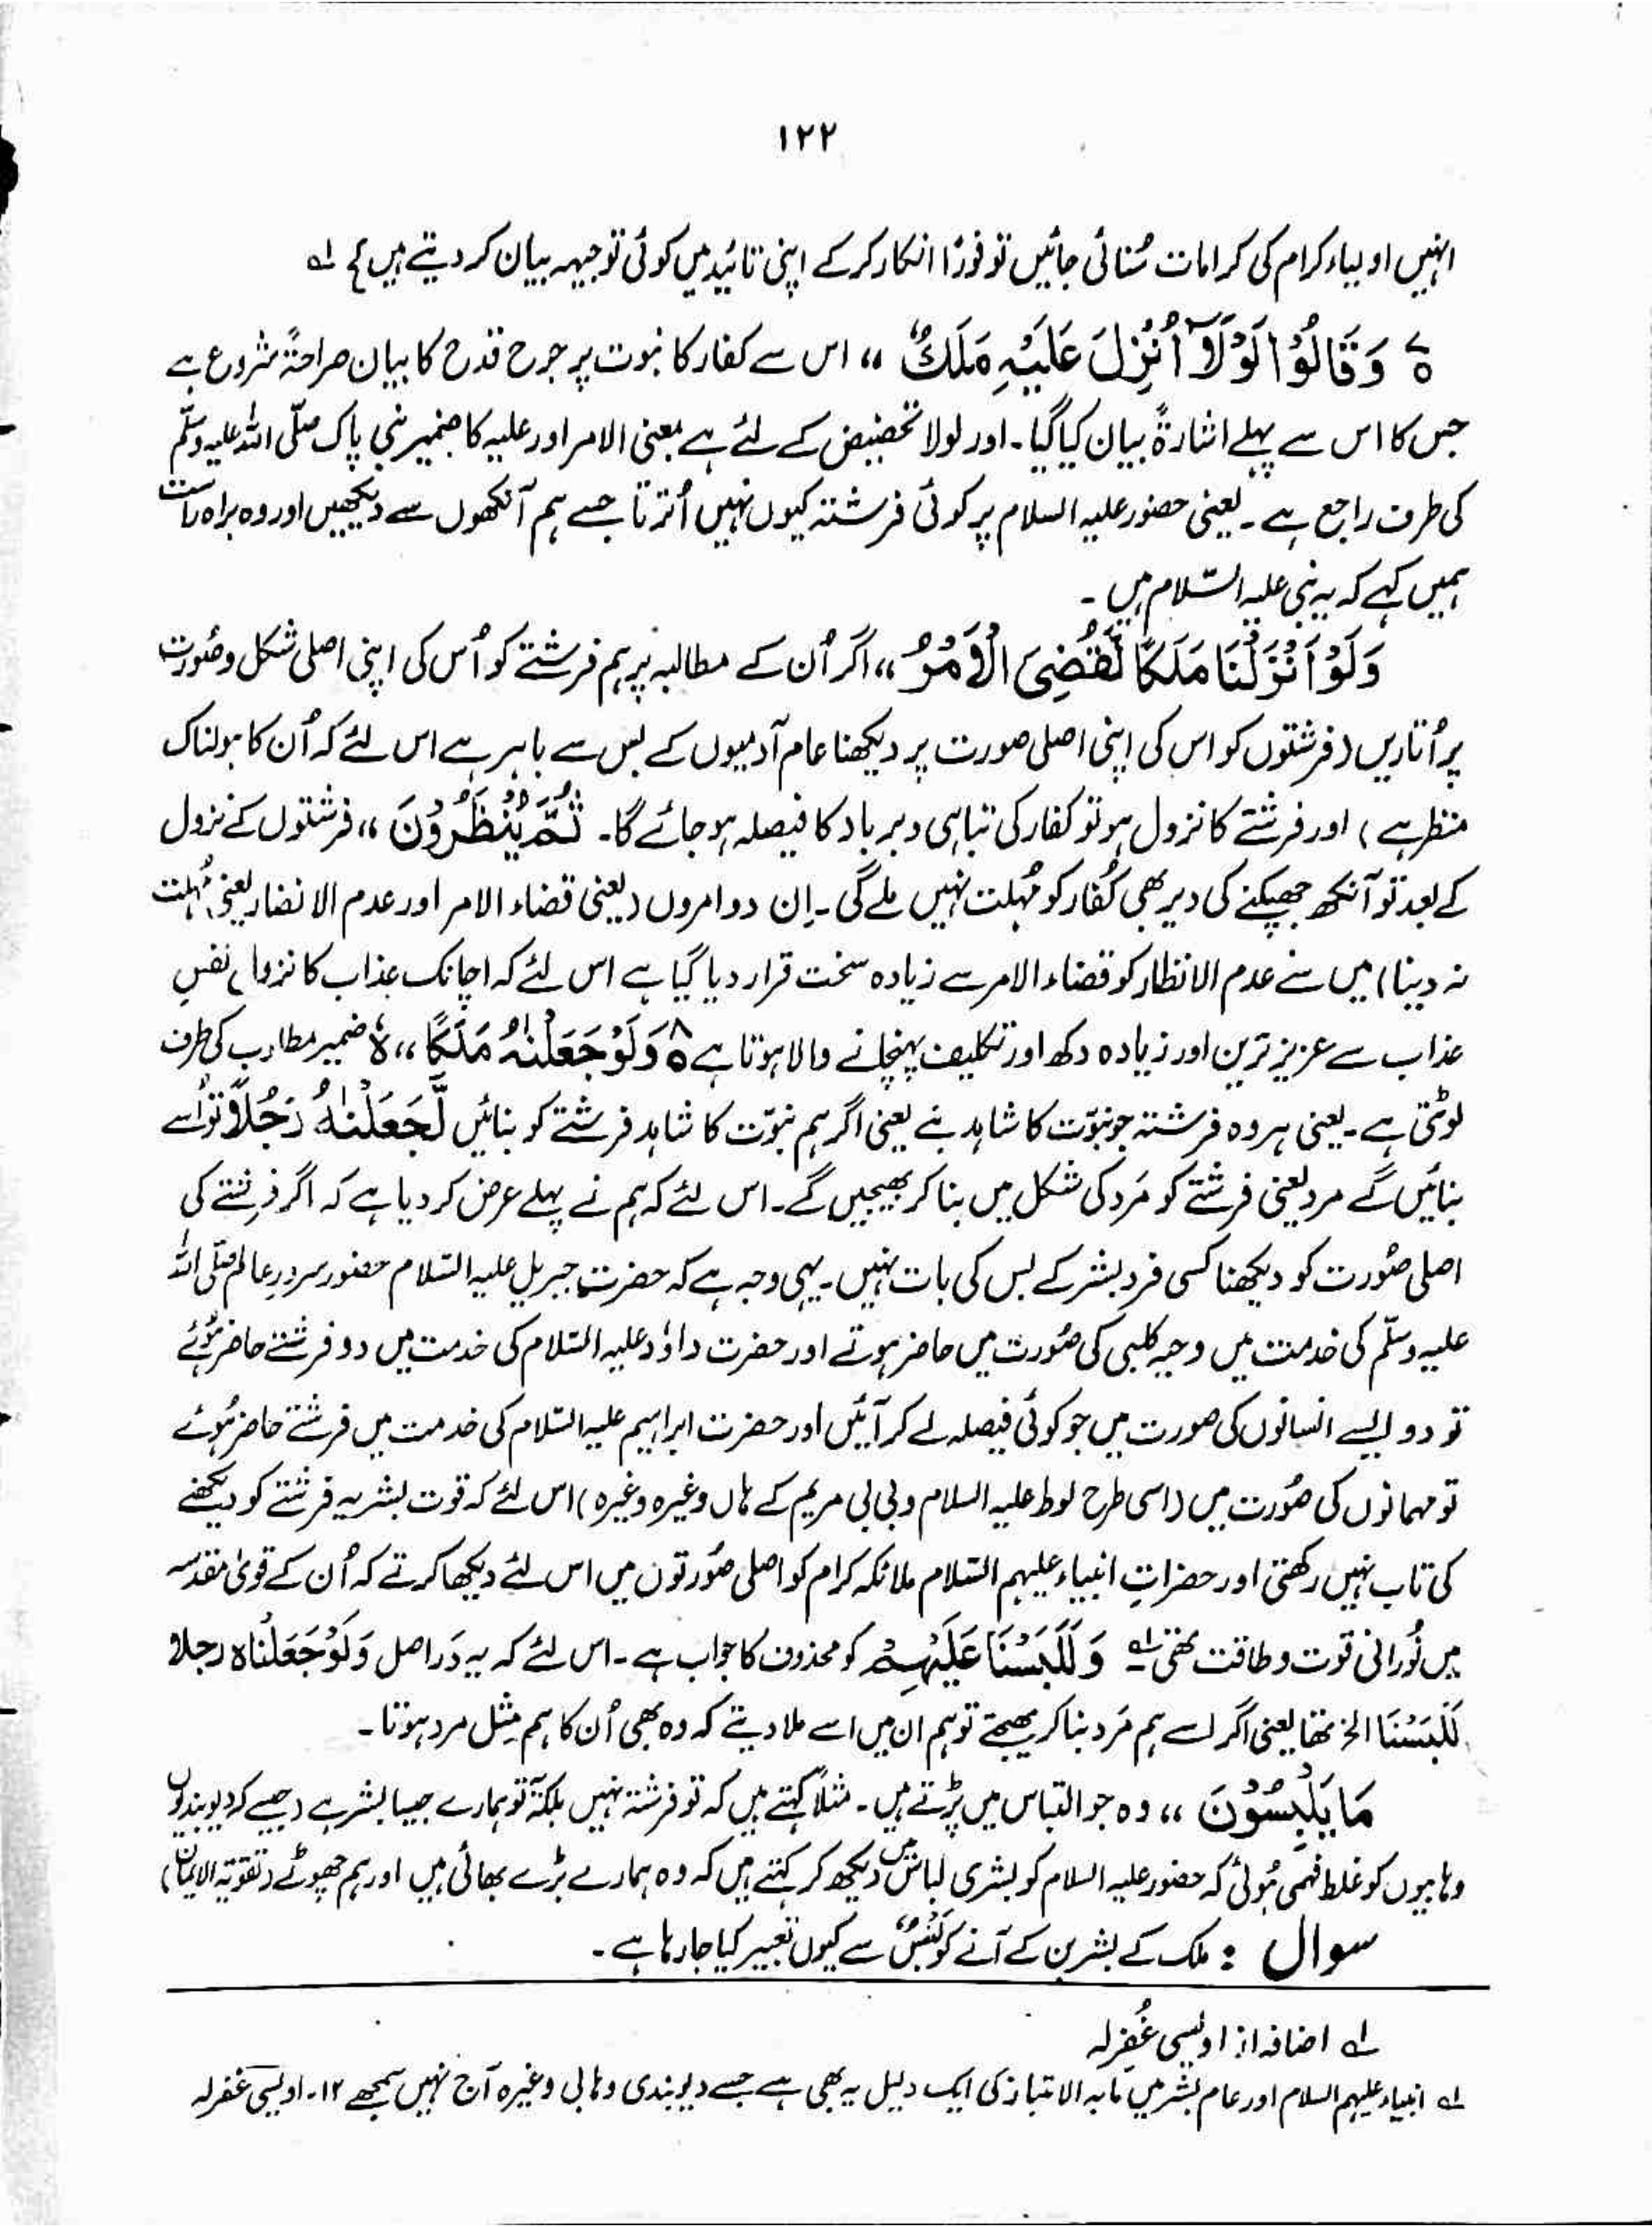 ۱۲۲
انہیں اولیاء کرام کی کرامات سُنائی جائیں تو فورًا انکار کرکے اپنی تائید میں کوئی توجیہہ بیان کر دیتے ہیں ؂۱
وَقَالُوْا لَوْلَآ اُنْزِلَ عَلَیْہِ مَلَکٌ ،، اس سے کفار کا نبوت پر جرح قدح کا بیان صراحۃً شروع ہے
جس کا اس سے پہلے اشارۃً بیان کیا گیا۔ اور لولا تحضیض کے لئے ہے بمعنی الامر اور علیہ کا ضمیر نبی پاک صلّی اللہ علیہ وسلّم
کی طرف راجع ہے۔ یعنی حضور علیہ السلام پر کوئی فرشتہ کیوں نہیں اُترتا جسے ہم آنکھوں سے دیکھیں اور وہ براہ راست
ہمیں کہے کہ یہ نبی علیہ السّلام ہیں۔
وَلَوْ اَنْزَلْنَا مَلَکًا لَّقُضِیَ الْاَمْرُ ،، اگر اُن کے مطالبہ پر ہم فرشتے کو اُس کی اپنی اصلی شکل و صُورت
پر اُتاریں (فرشتوں کو اس کی اپنی اصلی صورت پر دیکھنا عام آدمیوں کے بس سے باہر ہے اس لئے کہ اُن کا ہولناک
منظر ہے) اور فرشتے کا نزول ہو تو کفار کی تباہی و برباد کا فیصلہ ہو جائے گا۔ ثُمَّ یُنْظَرُوْنَ ،، فرشتوں کے نزول
کے بعد تو آنکھ جھپکنے کی دیر بھی کُفار کو مُہلت نہیں ملے گی۔ اِن دو امروں (یعنی قضاء الامر اور عدم الانضار یعنی مُہلت
نہ دینا) میں سے عدم الانظار کو قضاء الامر سے زیادہ سخت قرار دیا گیا ہے اس لئے کہ اچانک عذاب کا نزول نفسِ
عذاب سے عزیز ترین اور زیادہ دکھ اور تکلیف پہنچانے والا ہوتا ہے وَلَوْ جَعَلْنٰہُ مَلَکًا ،، ہٗ ضمیر مطلوب کی طرف
لوٹتی ہے۔ یعنی ہر وہ فرشتہ جو نبوّت کا شاہد بنے یعنی اگر ہم نبوّت کا شاہد فرشتے کو بنائیں لَّجَعَلْنٰہُ رَجُلًا تو اُسے
بنائیں گے مرد یعنی فرشتے کو مَرد کی شکل میں بنا کر بھیجیں گے۔ اس لئے کہ ہم نے پہلے عرض کر دیا ہے کہ اگر فرشتے کی
اصلی صُورت کو دیکھنا کسی فرد بشر کے بس کی بات نہیں۔ یہی وجہ ہے کہ حضرت جبریل علیہ السّلام حضور سرورِ عالم صلّی اللہ
علیہ وسلّم کی خدمت میں وحیہ کلبی کی صُورت میں حاضر ہوتے اور حضرت داؤد علیہ السّلام کی خدمت میں دو فرشتے حاضر ہُوئے
تو دو ایسے انسانوں کی صورت میں جو کوئی فیصلہ لے کر آئیں اور حضرت ابراہیم علیہ السّلام کی خدمت میں فرشتے حاضر ہُوئے
تو مہمانوں کی صُورت میں (اسی طرح لوط علیہ السلام و بی بی مریم کے ہاں وغیرہ وغیرہ) اس لئے کہ قوت بشریہ فرشتے کو دیکھنے
کی تاب نہیں رکھتی اور حضراتِ انبیاء علیہم السّلام ملائکہ کرام کو اصلی صُورتوں میں اس لئے دیکھا کرتے کہ اُن کے قویٰ مقدسہ
میں نُورانی قوت و طاقت تھی ؂۱ وَ لَلَبَسْنَا عَلَیْہِمْ کو محذوف کا جواب ہے۔ اس لئے کہ یہ دَر اصل وَلَوْ جَعَلْنَاہ رجلا
لَلَبَسْنَا الخ تھا یعنی اگر اسے ہم مَرد بنا کر بھیجتے تو ہم ان میں اسے ملا دیتے کہ وہ بھی اُن کا ہم مِثل مرد ہوتا۔
مَا یَلْبِسُوْنَ ،، وہ جو التباس میں پڑتے ہیں۔ مثلاً کہتے ہیں کہ تو فرشتہ نہیں بلکہ تو ہمارے جیسا بشر ہے (جیسے کہ دیوبندیوں
وہابیوں کو غلط فہمی ہُوئی کہ حضور علیہ السلام کو بشری لباس میں دیکھ کر کہتے ہیں کہ وہ ہمارے بڑے بھائی ہیں اور ہم چھوٹے (تقویۃ الایمان)
سوال : ملک کے بشر بن کے آنے کو لَبْسٌ سے کیوں تعبیر کیا جا رہا ہے۔
؂۱ اضافہ از اویسی غُفِرلہ
؂۱ انبیاء علیہم السلام اور عام بشر میں مابہ الامتیاز کی ایک دلیل یہ بھی ہے جسے دیوبندی وہابی وغیرہ آج نہیں سمجھے ۱۲۔ اویسی غفرلہ